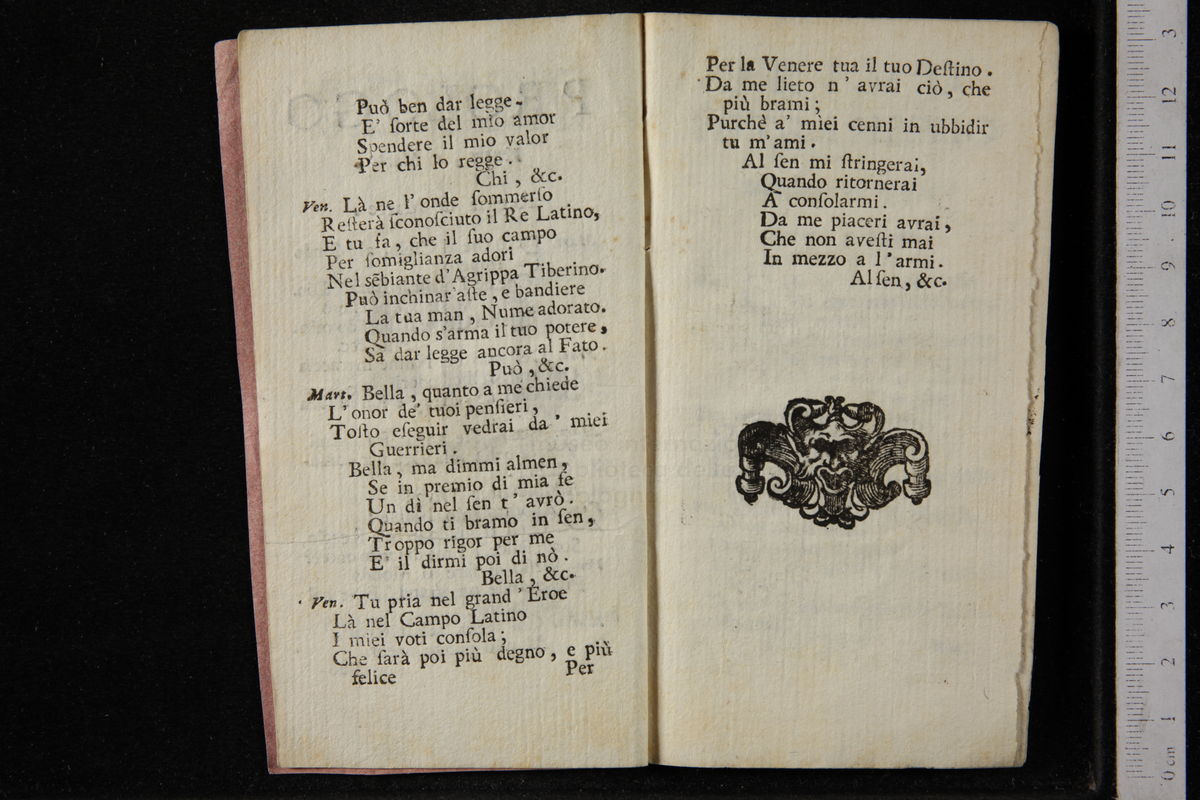 Può ben dar legge.
E' ſorte del mio amor
Spendere il mio valor
Per chi lo regge.
Chi, &c.
Ven. Là ne l'onde ſommerſo
Reſterà ſconoſciuto il Re Latino,
E tu fa, che il ſuo campo
Per ſomiglianza adori
Nel sẽbiante d'Agrippa Tiberino.
Può inchinar aſte, e bandiere
La tua man, Nume adorato.
Quando s'arma il tuo potere,
Sa dar legge ancora al Fato.
Può, &c.
Mart. Bella, quanto a me chiede
L'onor de' tuoi penſieri,
Toſto eſeguir vedrai da' miei
Guerrieri.
Bella, ma dimmi almen,
Se in premio di mia fe
Un dì nel ſen t' avrò.
Quando ti bramo in ſen,
Troppo rigor per me
E' il dirmi poi di nò.
Bella, &c.
Ven. Tu pria nel grand' Eroe
Là nel Campo Latino
I miei voti conſola;
Che ſarà poi più degno, e più
felice
Per
Per la Venere tua il tuo Deſtino.
Da me lieto n' avrai ciò, che
più brami;
Purchè a' miei cenni in ubbidir
tu m'ami.
Al ſen mi ſtringerai,
Quando ritornerai
A conſolarmi.
Da me piaceri avrai,
Che non aveſti mai
In mezzo a l'armi.
Al ſen, &c.
0 cm 1 2 3 4 5 6 7 8 9 10 11 12 3